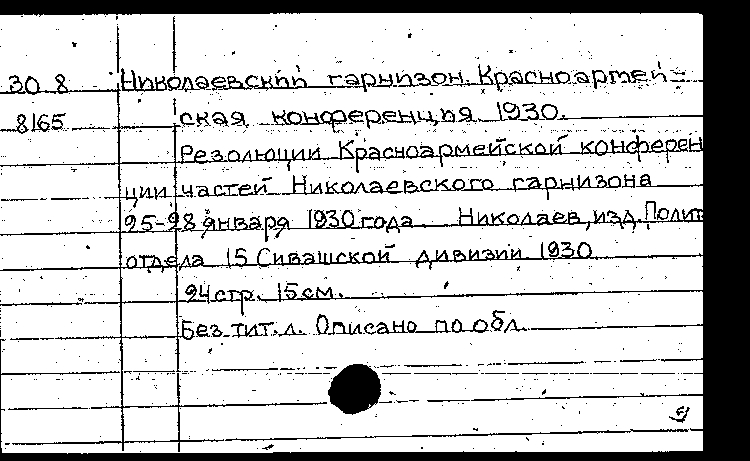 30 8 Николаевский гарнизон. Красноармей=
8165 ская конференция 1930.
Резолюции Красноармейской конферен
ции частей Николаевского гарнизона
25-28 января 1930 года. Николаев, изд. Полит
отдела 15 Сивашской дивизии 1930
24 стр. 15 см.
Без тит. л. Описано по обл.